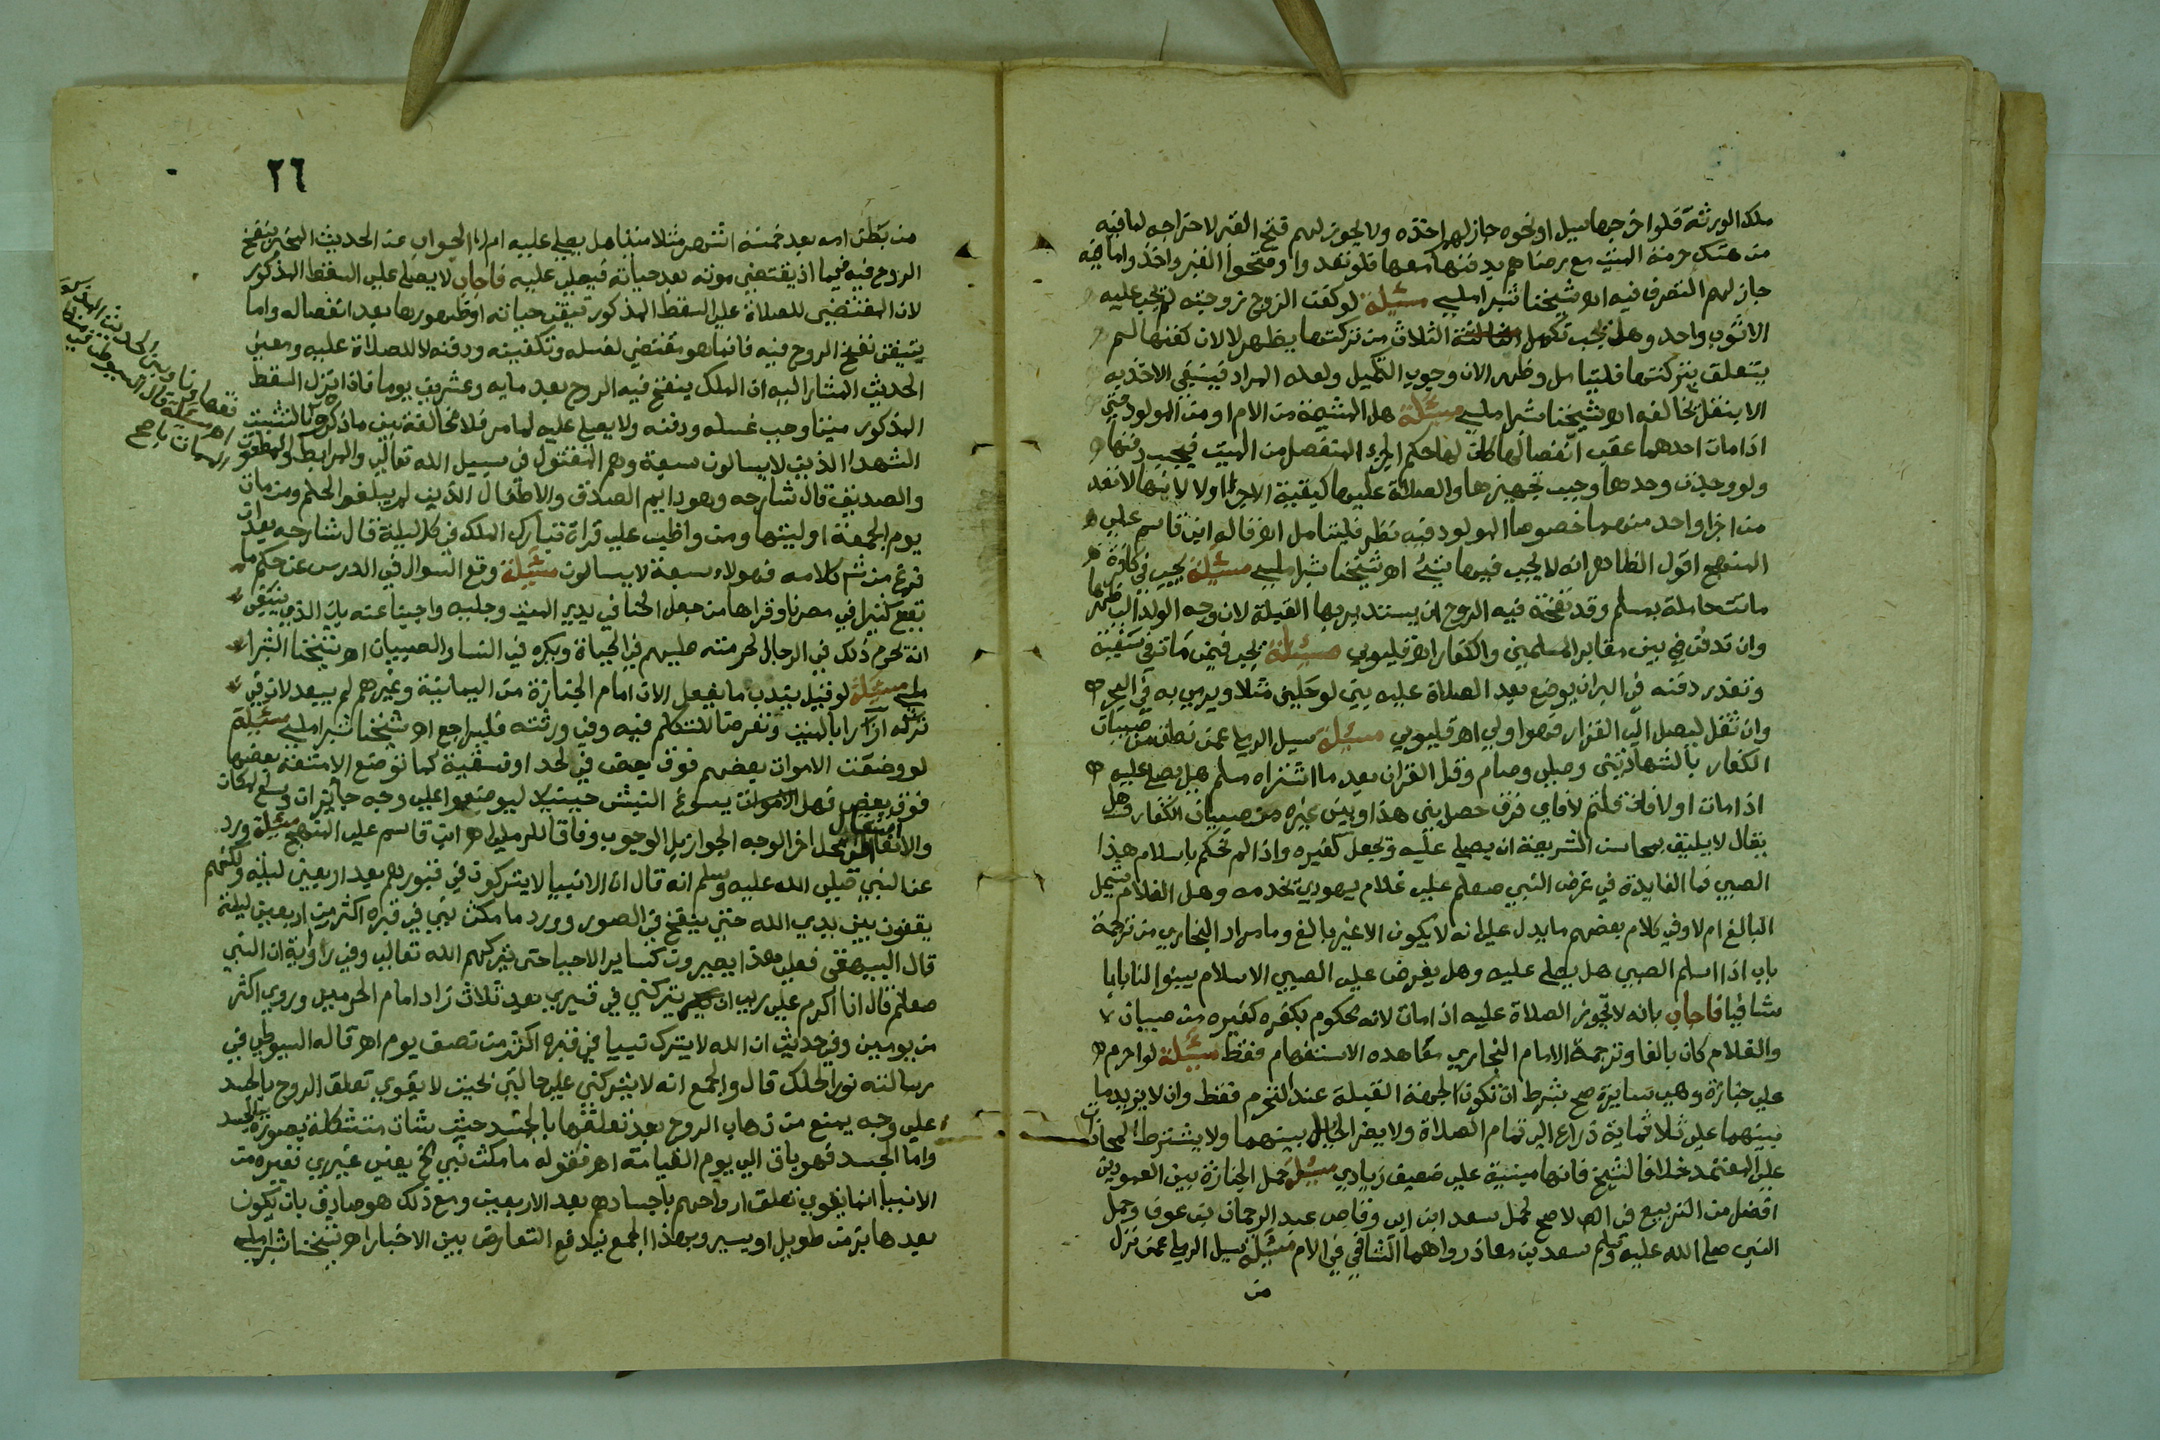 ملك الورثة فلو اخرجها سيل او نحوه جاز لهم اخذه ولا يجوز لهم فتح القبر لاخراجه لما فيه
من هتك حرمة الميت مع رضاهم بدفنها معها فلو تعدوا وفتحوا القبر واخذوا ما فيه
جاز لهم التصرف فيه اه شيخنا شبراملسي مسئلة لو كفن الزوج زوجته لم يجب عليه
الا ثوب واحد وهل يجب تكميل الثلاث من تركتها يظهر لا لان كفنها لم
يتعلق بتركتها فليتامل وظهر الان وجوب التكميل ولعله المراد فينبغي الاخذ به
الا بنقل يخالفه اه شيخنا شبراملسي مسئلة هل المشيمة من الام او من المولود حتى
اذا مات احدهما عقب انفصالها كان لها حكم الجزء المنفصل من الميت فيجب دفنها
ولو وجدت وحدها وجب تجهيزها والصلاة عليها كبقية الاجزا اولا لانها لا تعد
من اجزا واحد منهما خصوصا المولود فيه نظر فليتامل اه قاله ابن قاسم على
المنهج اقول الظاهر انه لا يجب فيها شئ اه شيخنا شبراملسي مسئلة يجب في كافرة
ماتت حاملة بمسلم وقد نفخت فيه الروح ان يستدبر بها القبلة لان وجه الولد الى ظهرها
وان تدفن في بين مقابر المسلمين والكفار اه قليوبي مسئلة يجب فيمن مات في سفينة
وتعذر دفنه في البر ان يوضع بعد الصلاة عليه بين لوحين مثلا ويرمى به في البحر
وان ثقل ليصل الى القرار فهو اولى اه قليوبي مسئلة سيل الرملي عمن نطق من صبيان
الكفار بالشهادتين وصلى وصام وقرا القران بعد ما اشتراه مسلم هل يصلى عليه
اذا مات اولا فان قلتم لا فاي فرق حصل بين هذا وبين غيره من صبيان الكفار وهل
يقال لا يليق بمحاسن الشريعة ان يصلي عليه ويجعل كغيره واذا لم تحكم باسلام هذا
الصبي فما الفايدة في عرض النبي صلعم على غلام يهودي يخدمه وهل الغلام يشمل
البالغ ام لا وفي كلام بعضهم ما يدل على انه لا يكون الا غير بالغ وما مراد البخاري من ترجمة
باب اذا اسلم الصبي هل يصلى عليه وهل يعرض على الصبي الاسلام بينوا لنا بابا
شافيا فاجاب بانه لا تجوز الصلاة عليه اذا مات لانه محكوم بكفره كغيره من صبيان
والغلام كان بالغا وترجمة الامام البخاري مقاهده الاستفهام فقط مسئلة لو احرم
على جنازة وهي سايرة صح بشرط ان تكون لجهة القبلة عند التحرم فقط وان لا يزيد ما
بينهما على ثلاثماية ذراع الى تمام الصلاة ولا يضر الحائل بينهما ولا يشترط المحاذات
على المعتمد خلافا لشيخ فانها مبنية على ضعيف زيادي مسئلة حمل الجنازة بين العمودين
افضل من التربيع في الاصح لحمل سعد ابن ابي وقاص عبد الرحمان بن عوف وحمل
النبي صلى الله عليه وسلم سعد بن معاذ رواهما الشافعي في الام مسئلة سيل الرملي عمن نزل
من
٢٦
من بطن امه بعد خمسة اشهر مثلا ميتا هل يصلى عليه ام لا الجواب عن الحديث المخبر بنفخ
الروح فيه فيها اذ يقتضي موته بعد حياته فيصلى عليه فاجاب لا يصلى على السقط المذكور
لان المقتضي للصلاة على السقط المذكور تيقن حياته او ظهورها بعد انفصاله واما
يتيقن نفخ الروح فيه فانما هو مقتضي لغسله وتكفينه ودفنه لا للصلاة عليه ومعنى
الحديث المشار اليه ان الملك ينفخ فيه الروح بعد مايه وعشرين يوما فاذا نزل السقط
المذكور ميتا وجب غسله ودفنه ولا يصلى عليه لما مر فلا مخالفة بين ما ذكروه
الشهدا الذين لا يسالون سبعة وهم المقتول في سبيل الله تعالى والمرابط والمطعون
والصديق قال شارحه وهو دايم الصدق والاطفال الذين لم يبلغوا الحلم ومن مات
يوم الجمعة او ليلتها ومن واظب على قراة تبارك الملك في كل ليلة قال شارحه بعد ان
فرغ من ثم كلامه فهولاء سبعة لا يسالون مسئلة وقع السوال في الدرس عن حكم ما
يقع كثيرا في مصرنا وقراها من جعل الحنا في يدي الميت ورجليه واجبنا عنه بان الذي ينبغي
انه يحرم ذلك في الرجال لحرمته عليهم في الحياة ويكره في النسا والصبيان اه شيخنا الشبرا
ملسي مسئلة لو قيل بندب ما يفعل الان امام الجنازة من اليمانية وغيرهم لم يبعد لان في
تركه ازرا بالميت وتعرضا للتكلم فيه وفي ورثته فليراجع اه شيخنا شبراملسي مسئلة
لو وضعت الاموات بعضهم فوق بعض في لحد او فسقية كما توضع الامتعة بعضها
فوق بعض فهل يسوغ النبش حينئذ ليوضعوا على وجه جايز ان وسع المكان
والا نقلوا لمحل اخر الوجه الجواز بل الوجوب وفاقا للرملي اه ابن قاسم على المنهج مسئلة ورد
عن النبي صلى الله عليه وسلم انه قال ان الانبيا لا يتركون في قبورهم بعد اربعين ليلة ولكنهم
يقفون بين يدي الله حتى ينفخ في الصور وورد ما مكث نبي في قبره اكثر من اربعين ليلة
قال البيهقي فعلى هذا يصيرون كساير الاحيا حتى يتركهم الله تعالى وفي رواية ان النبي
صلعم قال انا اكرم على ربي ان يتركني في قبري بعد ثلاث زاد امام الحرمين وروي اكثر
من يومين وفي حديث ان الله لا يترك نبيا في قبره اكثر من نصف يوم اه قاله السيوطي في
رسالته نور الحلك قال والجمع انه لا يتركني على حالتي بحيث لا يقوي تعلق الروح بالجسد
على وجه يمنع من ذهاب الروح بعد تعلقها بالجسد حيث شات متشكلة بصورة الجسد
واما الجسد فهو باق الى يوم القيامة اه فقوله ما مكث نبي الخ يعني غيري فغيره من
الانبيا انما يقوي تعلق ارواحهم باجسادهم بعد الاربعين ومع ذلك هو صادق بان يكون
بعدها بزمن طويل او يسير وبهذا الجمع يندفع التعارض بين الاخبار اه شيخنا شبراملسي